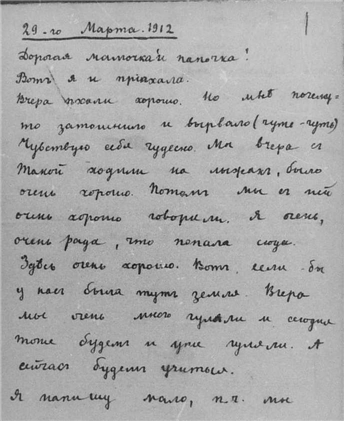 29-го Марта. 1912
Дорогая мамочка и папочка!
Вотъ я и пріѣхала.
Вчера ѣхали хорошо. Но мнѣ почему-
то затошнило и вырвало (чуте-чуть)
Чувствую себя чудесно. Мы вчера съ
Таной ходили на лыжахъ, было
очень хорошо. Потомъ мы съ ней
очинь хорошо говорили. Я очень,
очень рада, что попала сюда.
Здѣсь очень хорошо. Вотъ если бы
у насъ была тутъ земля. Вчера
мы очень много гуляли и сегодня
тоже будемъ и уже гуляли. А
сейчасъ будемъ учиться.
Я напишу мало, п.ч. мы